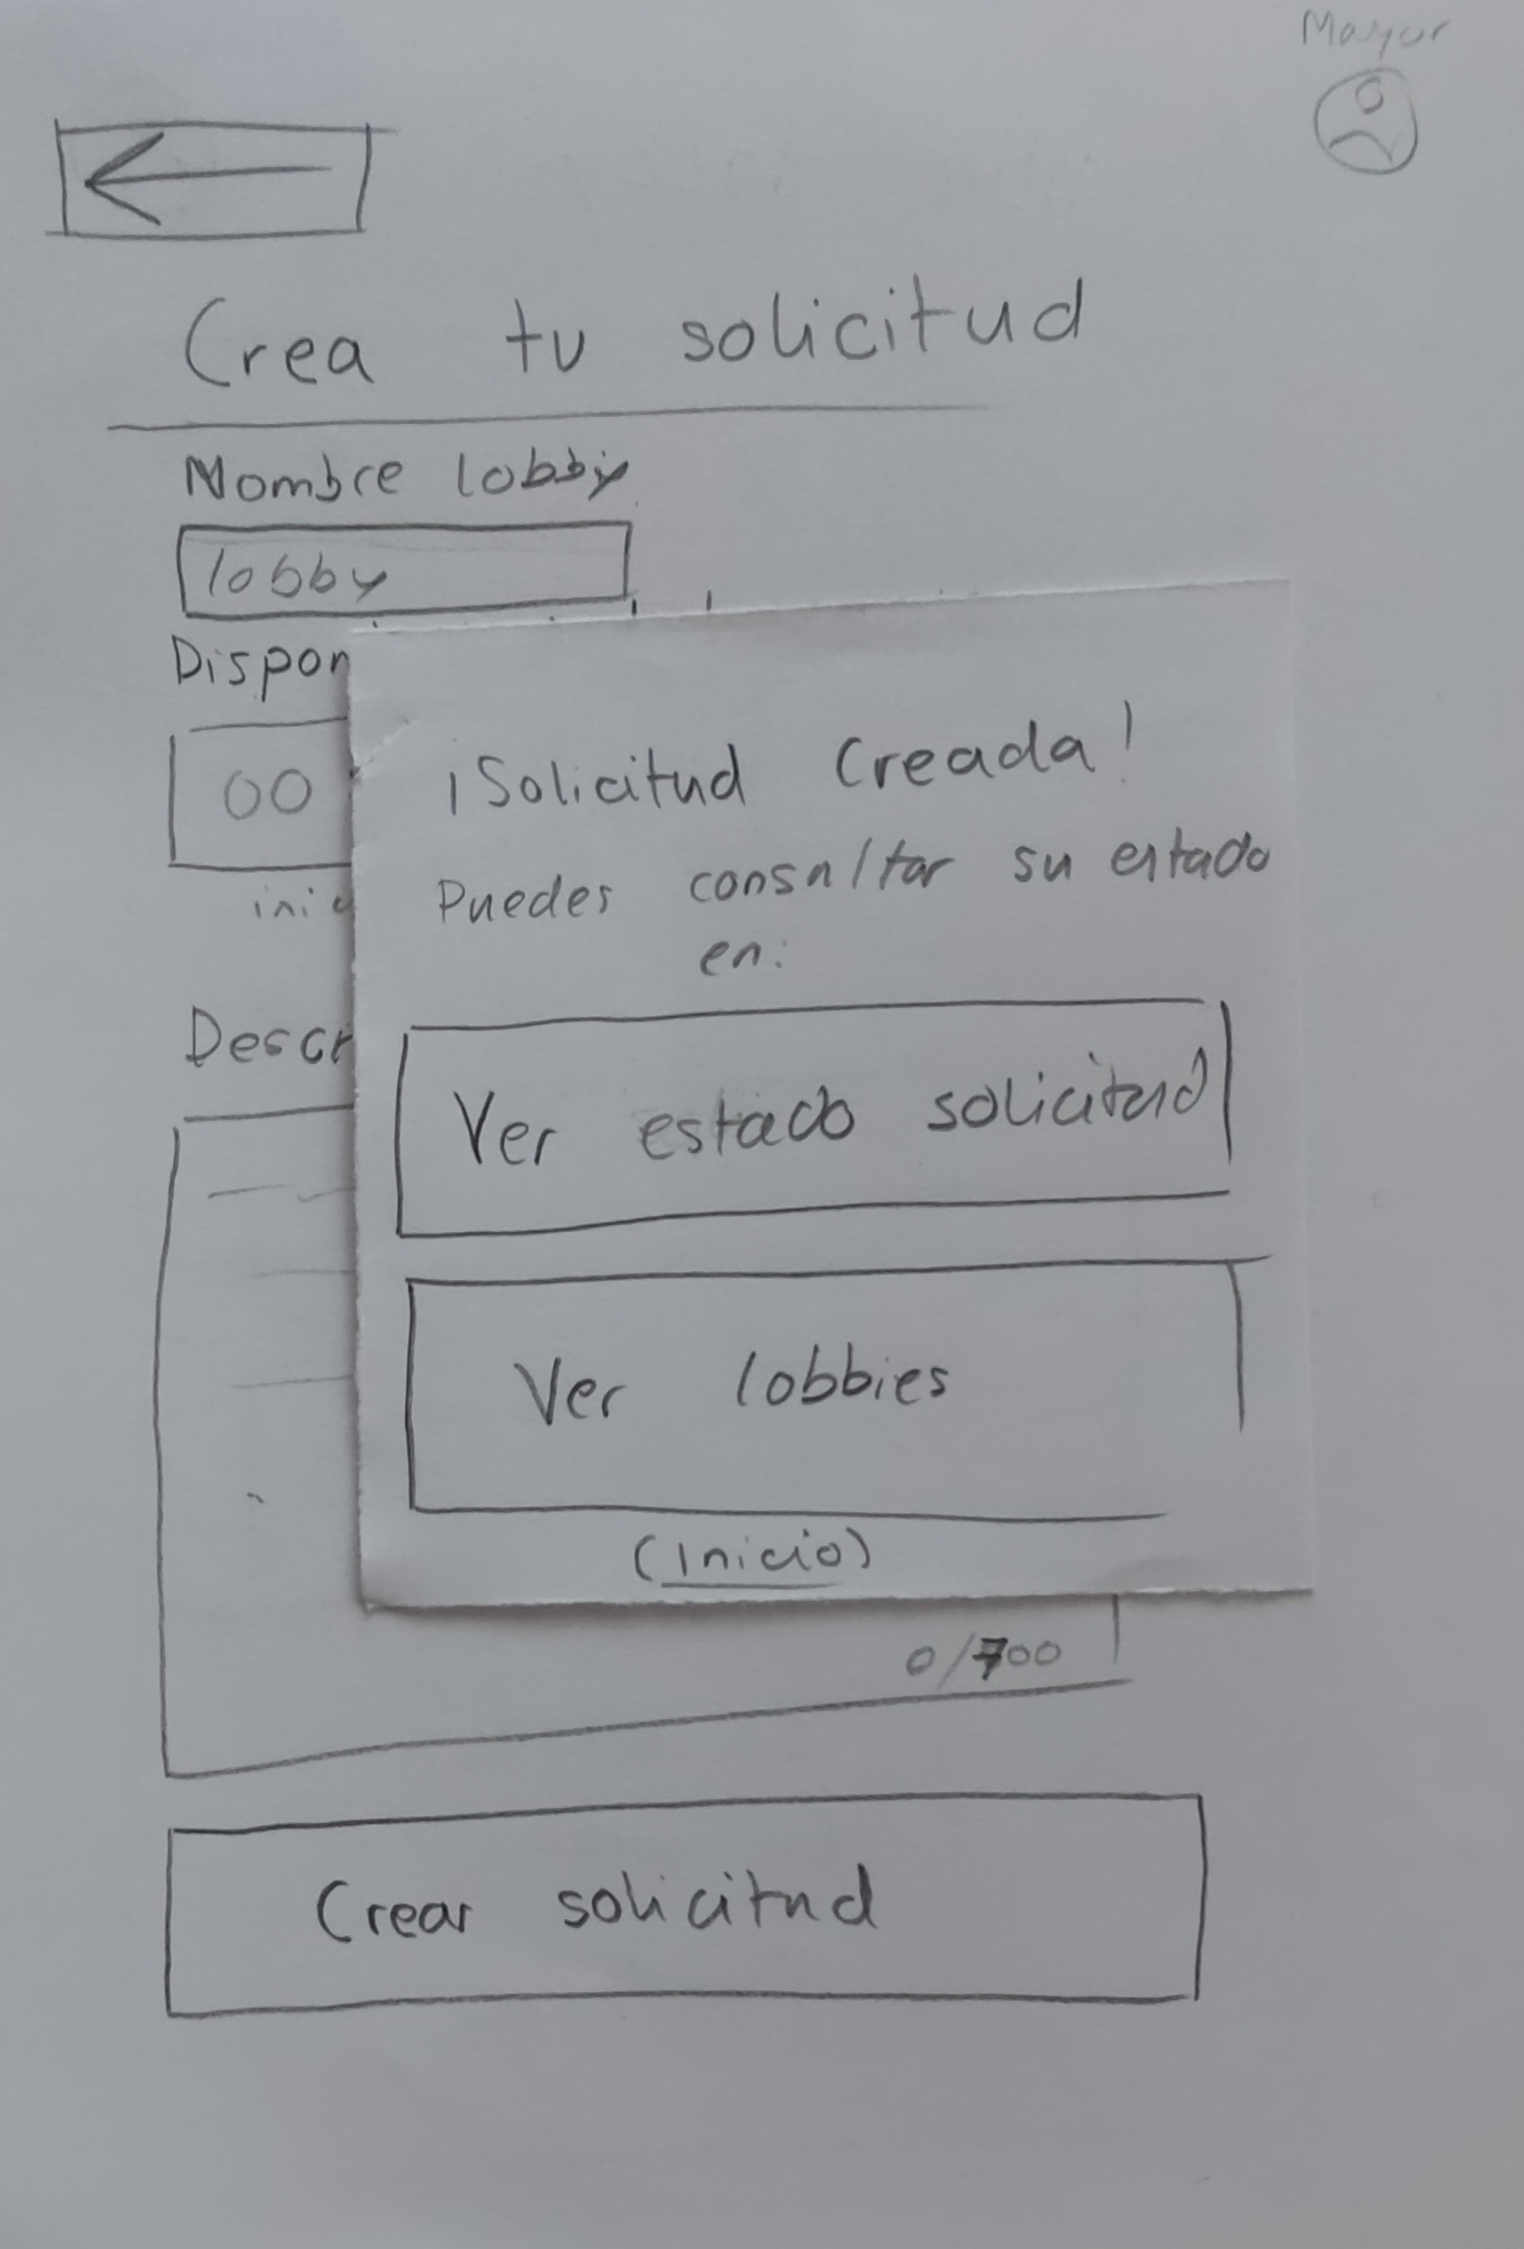 Mayor
Crea tu solicitud
Nombre lobby
lobby
Dispon
00
inic
Descr
¡Solicitud Creada!
Puedes consultar su estado
en:
Ver estado solicitud
Ver lobbies
(Inicio)
0/700
Crear solicitud